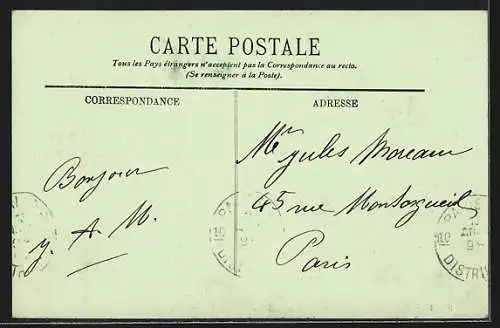 CARTE POSTALE
Tous les Pays étrangers n'acceptent pas la Correspondance au recto.
(Se renseigner à la Poste).
CORRESPONDANCE
ADRESSE
Mr Jules Moreau
45 rue Montorgueil
Paris
Bonjour
y. A. M.
DISTRI